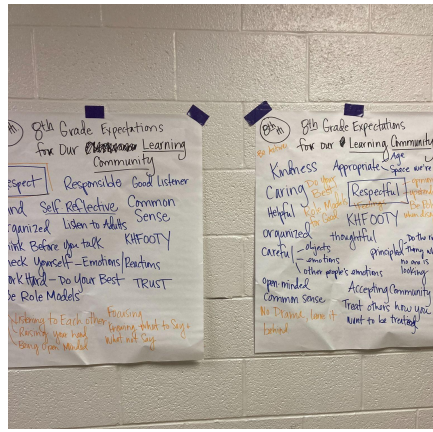 8th Grade Expectations
for Our Learning
Community
espect Responsible Good listener
ind Self Reflective Common
Sense
organized Listen to Adults
ink Before you talk KHFOOTY
eck Yourself - Emotions/Reactions
ork Hard - Do Your Best TRUST
e Role Models
Listening to Each other Focusing
Raising your hand Knowing what to Say &
Being Open Minded what not Say
8th 8th Grade Expectations
for Our Learning Community
Be
Kindness Appropriate Age
space we're
Caring Do Your Best Respectful
Helpful Role Models KHFOOTY
organized thoughtful
Careful objects principled Do the
emotions thing
other people's emotions no one is
looking
open-minded Accepting Community
Common sense Treat others how you
want to be treated
No Drama, leave it
behind